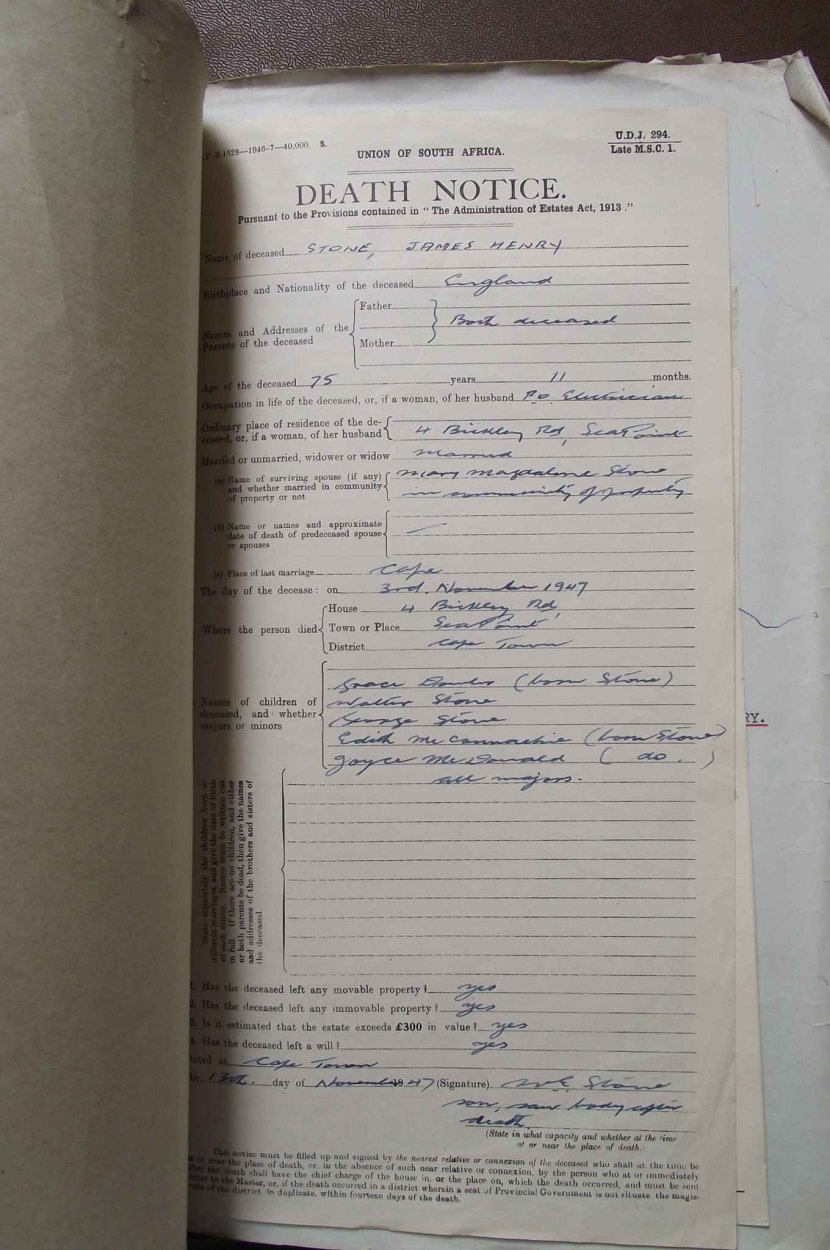 P.-S.1528—1946-7—40,000 S.
U.D.J. 294.
Late M.S.C. 1.
UNION OF SOUTH AFRICA.
DEATH NOTICE.
Pursuant to the Provisions contained in "The Administration of Estates Act, 1913."
Name of deceased STONE, JAMES HENRY
Birthplace and Nationality of the deceased England
Names and Addresses of the Parents of the deceased
Father
Both deceased
Mother
Age of the deceased 75 years 11 months.
Occupation in life of the deceased, or, if a woman, of her husband P.O. Electrician
Ordinary place of residence of the de-
ceased, or, if a woman, of her husband 4 Bickley Rd, Sea Point
Married or unmarried, widower or widow married
(a) Name of surviving spouse (if any) Mary Magdalene Stone
and whether married in community in community of property
of property or not
(b) Name or names and approximate
date of death of predeceased spouse
or spouses
(c) Place of last marriage Cape
The day of the decease: on 3rd. November 1947
Where the person died
House 4 Bickley Rd,
Town or Place Sea Point
District Cape Town
Names of children of
deceased, and whether
majors or minors
Grace (born Stone)
Walter Stone
George Stone
Edith McConnachie (born Stone)
Joyce McDonald ( do. )
all majors.
State separately the children born of
different marriages, and give the date of birth
of each minor. Names must be written out
in full. If there are no children, and either
or both parents be dead, then give the names
and addresses of the brothers and sisters of
the deceased.
1. Has the deceased left any movable property? yes
2. Has the deceased left any immovable property? yes
3. Is it estimated that the estate exceeds £300 in value? yes
4. Has the deceased left a will? yes
Dated at Cape Town
the 13th. day of November 1947 (Signature) W.E. Stone
son, saw body after
death.
(State in what capacity and whether at the time
at or near the place of death.
This notice must be filled up and signed by the nearest relative or connexion of the deceased who shall at the time be
at or near the place of death, or, in the absence of such near relative or connexion, by the person who at or immediately
after the death shall have the chief charge of the house in, or the place on, which the death occurred, and must be sent
either to the Master, or, if the death occurred in a district wherein a seat of Provincial Government is not situate the magis-
of the district, in duplicate, within fourteen days of the death.
RY.